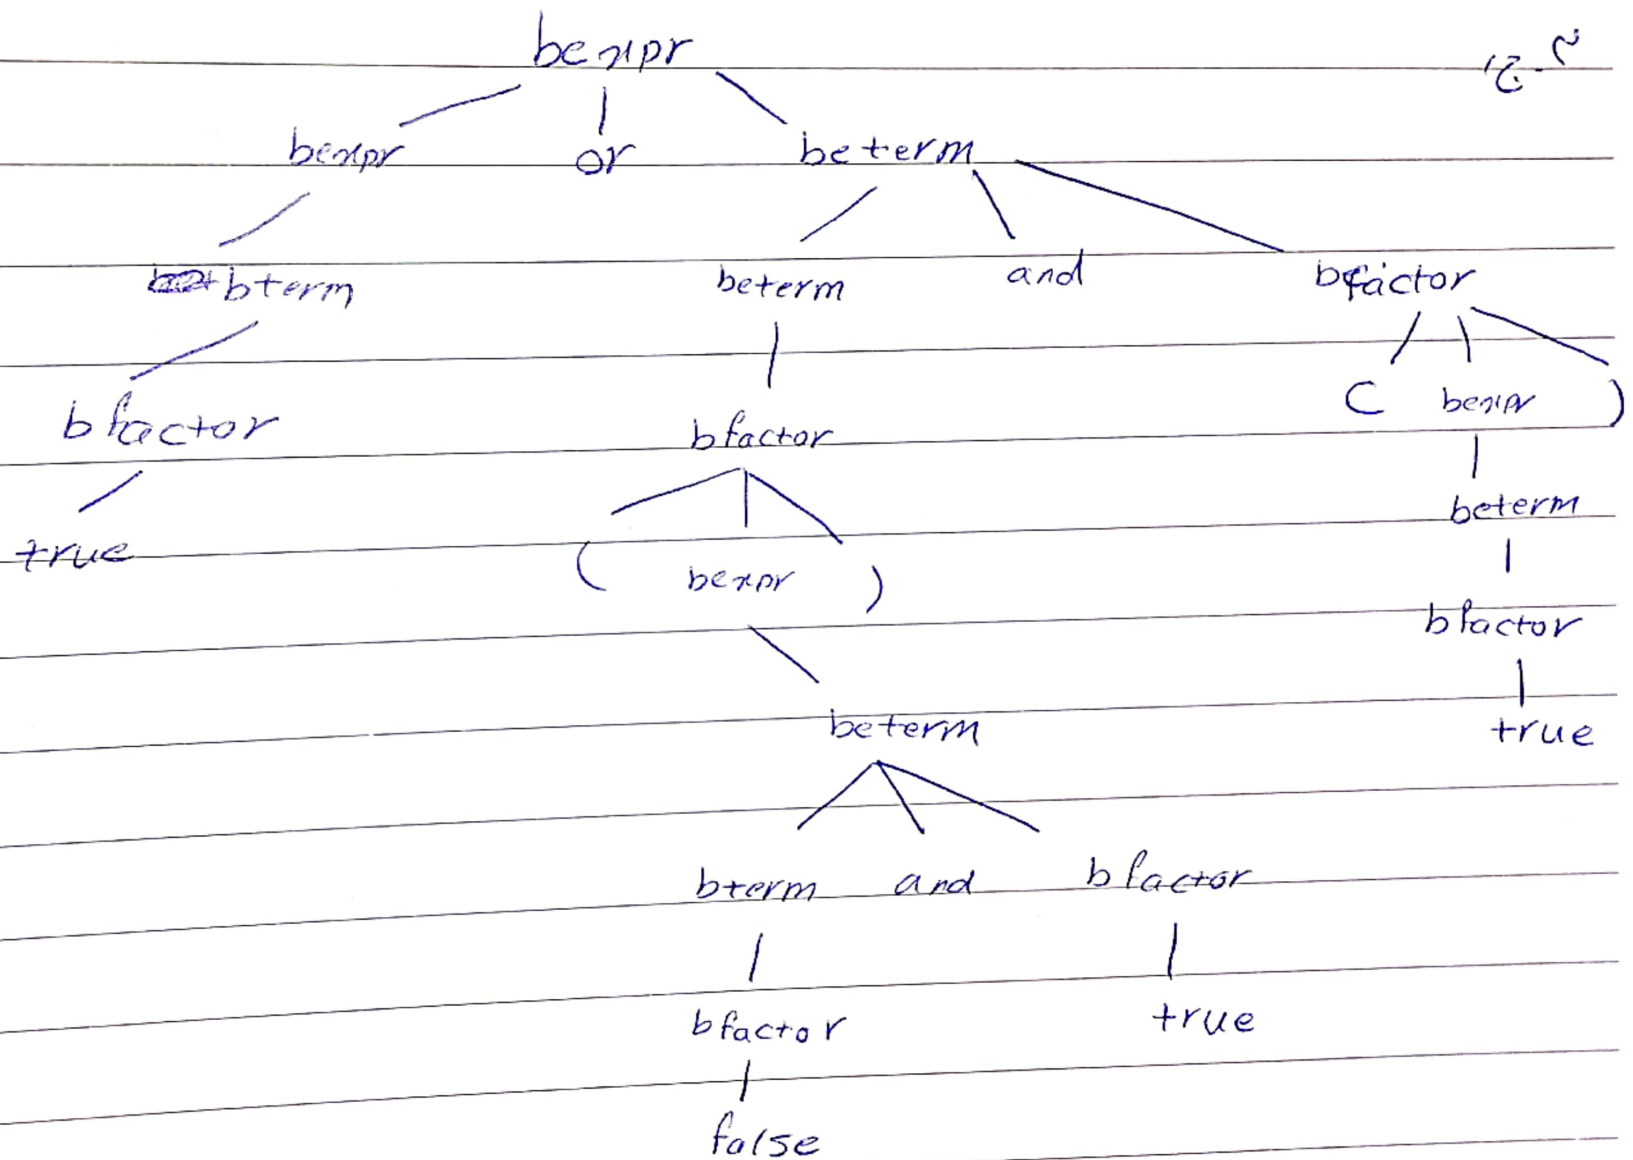 bexpr
bexpr or beterm
bterm beterm and bfactor
bfactor bfactor ( bexpr )
true ( bexpr ) beterm
bfactor
beterm true
bterm and bfactor
bfactor true
false